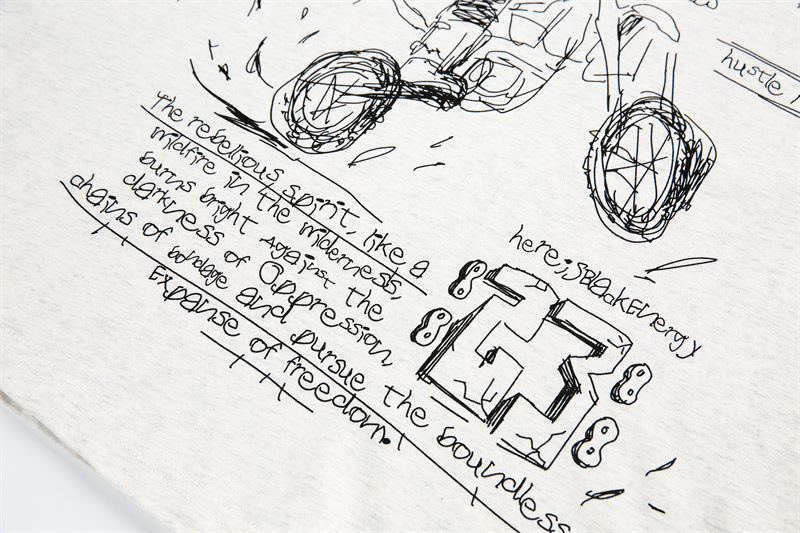 hustle
The rebellious spirit, like a
wildfire in the wilderness,
burns bright against the
darkness of Oppression,
chains of bondage and pursue the boundless
Expanse of freedom.
here;